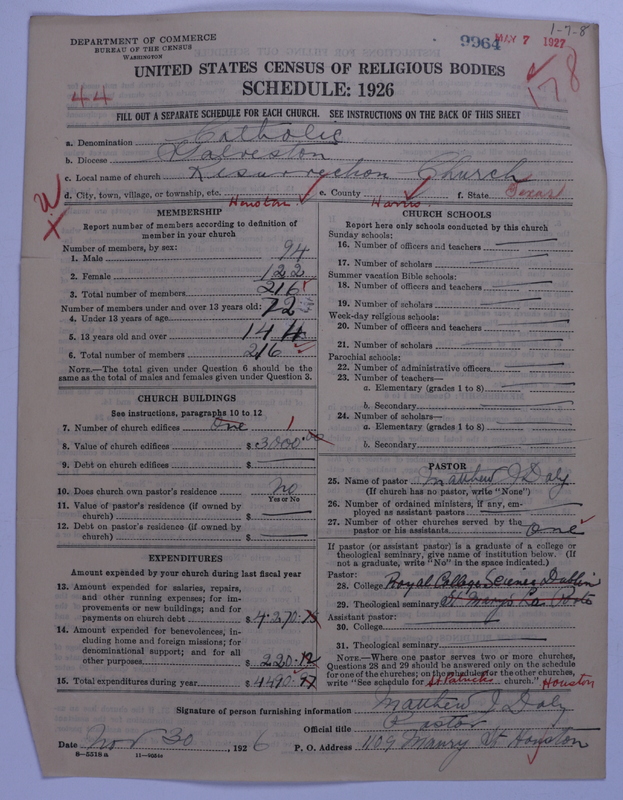 1-7-8
DEPARTMENT OF COMMERCE
BUREAU OF THE CENSUS
WASHINGTON
9964 MAY 7 1927
178
UNITED STATES CENSUS OF RELIGIOUS BODIES
SCHEDULE: 1926
44
FILL OUT A SEPARATE SCHEDULE FOR EACH CHURCH. SEE INSTRUCTIONS ON THE BACK OF THIS SHEET
a. Denomination Catholic
b. Diocese Galveston
c. Local name of church Resurrection Church
d. City, town, village, or township, etc. Houston e. County Harris f. State Texas
MEMBERSHIP
Report number of members according to definition of
member in your church
Number of members, by sex:
1. Male 94
2. Female 122
3. Total number of members 216
Number of members under and over 13 years old:
4. Under 13 years of age 72
5. 13 years old and over 144
6. Total number of members 216
NOTE.—The total given under Question 6 should be
same as the total of males and females given under Question 3.
CHURCH BUILDINGS
See instructions, paragraphs 10 to 12
7. Number of church edifices One 1
8. Value of church edifices $ 3000.
9. Debt on church edifices $
10. Does church own pastor's residence No
Yes or No
11. Value of pastor's residence (if owned by
church) $
12. Debt on pastor's residence (if owned by
church) $
EXPENDITURES
Amount expended by your church during last fiscal year
13. Amount expended for salaries, repairs,
and other running expenses; for im-
provements or new buildings; and for
payments on church debt $ 4.270.
14. Amount expended for benevolences, in-
cluding home and foreign missions; for
denominational support; and for all
other purposes $ 220.12
15. Total expenditures during year $ 4490.
CHURCH SCHOOLS
Report here only schools conducted by this church
Sunday schools:
16. Number of officers and teachers
17. Number of scholars
Summer vacation Bible schools:
18. Number of officers and teachers
19. Number of scholars
Week-day religious schools:
20. Number of officers and teachers
21. Number of scholars
Parochial schools:
22. Number of administrative officers
23. Number of teachers—
a. Elementary (grades 1 to 8)
b. Secondary
24. Number of scholars—
a. Elementary (grades 1 to 8)
b. Secondary
PASTOR
25. Name of pastor Matthew J Daly
(If church has no pastor, write "None")
26. Number of ordained ministers, if any, em-
ployed as assistant pastors
27. Number of other churches served by the
pastor or his assistants One
If pastor (or assistant pastor) is a graduate of a college or
theological seminary, give name of institution below. (If
not a graduate, write "No" in the space indicated.)
Pastor:
28. College Royal College Science Dublin
29. Theological seminary St Mary's La Porte
Assistant pastor:
30. College
31. Theological seminary
NOTE.—Where one pastor serves two or more churches,
Questions 28 and 29 should be answered only on the schedule
for one of the churches; on the schedules for the other churches,
write "See schedule for St Patricks church." Houston
Signature of person furnishing information Matthew J Daly
Official title Pastor
Date Nov 30, 1926 P. O. Address 1109 Maury St Houston
8—5518 a